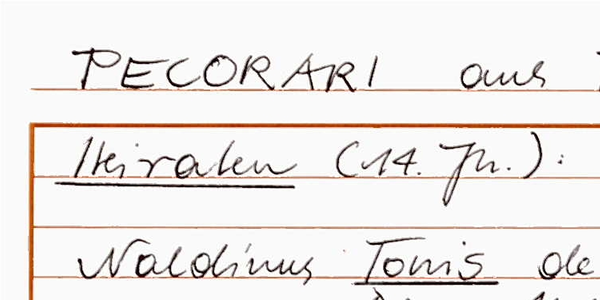 PECORARI aus
Heiraten (14. Jh.):
Naldinus Tonis de